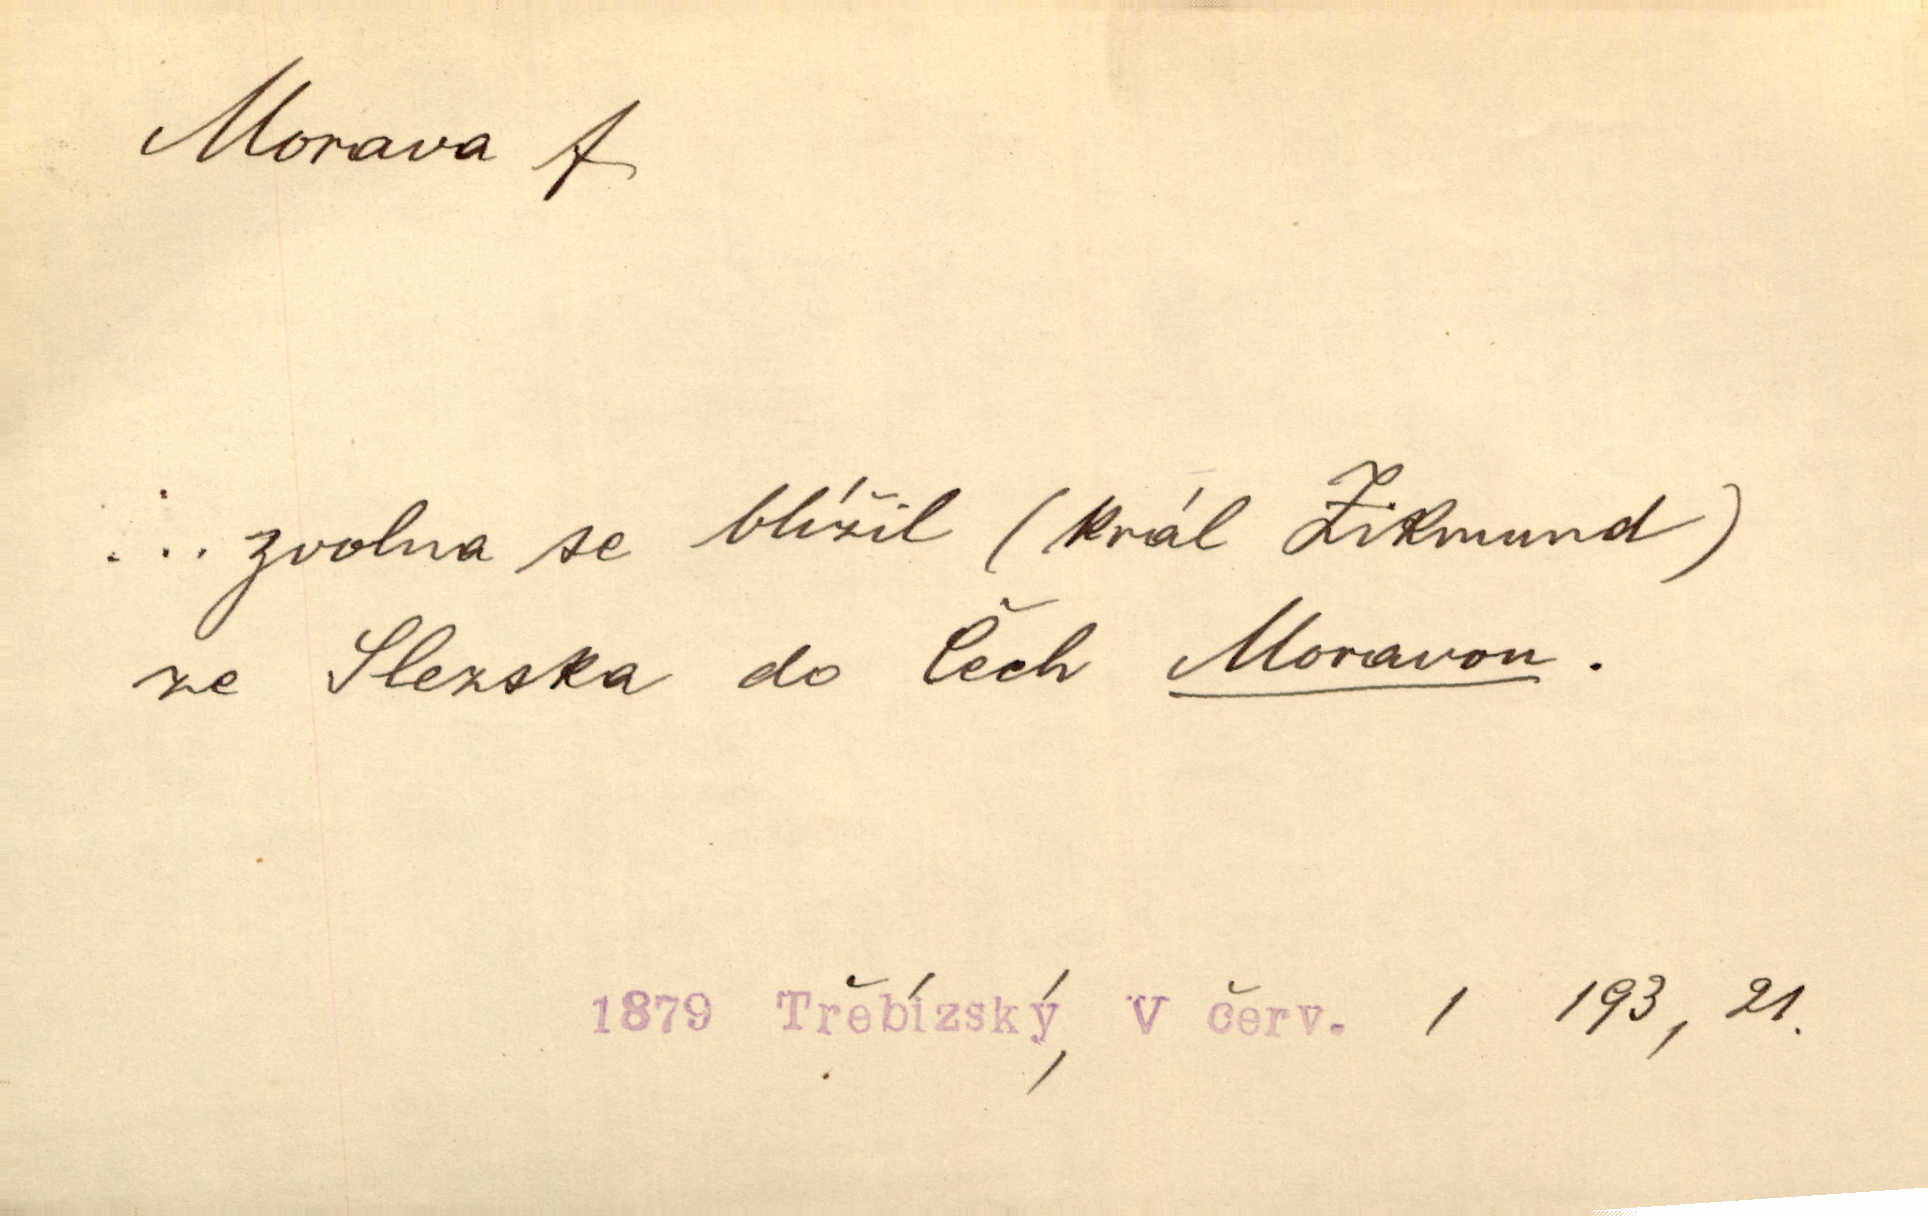 Morava f
... zvolna se blížil (král Zikmund)
ze Slezska do Čech Moravou.
1879 Třebízský, V červ. 1 193, 21.